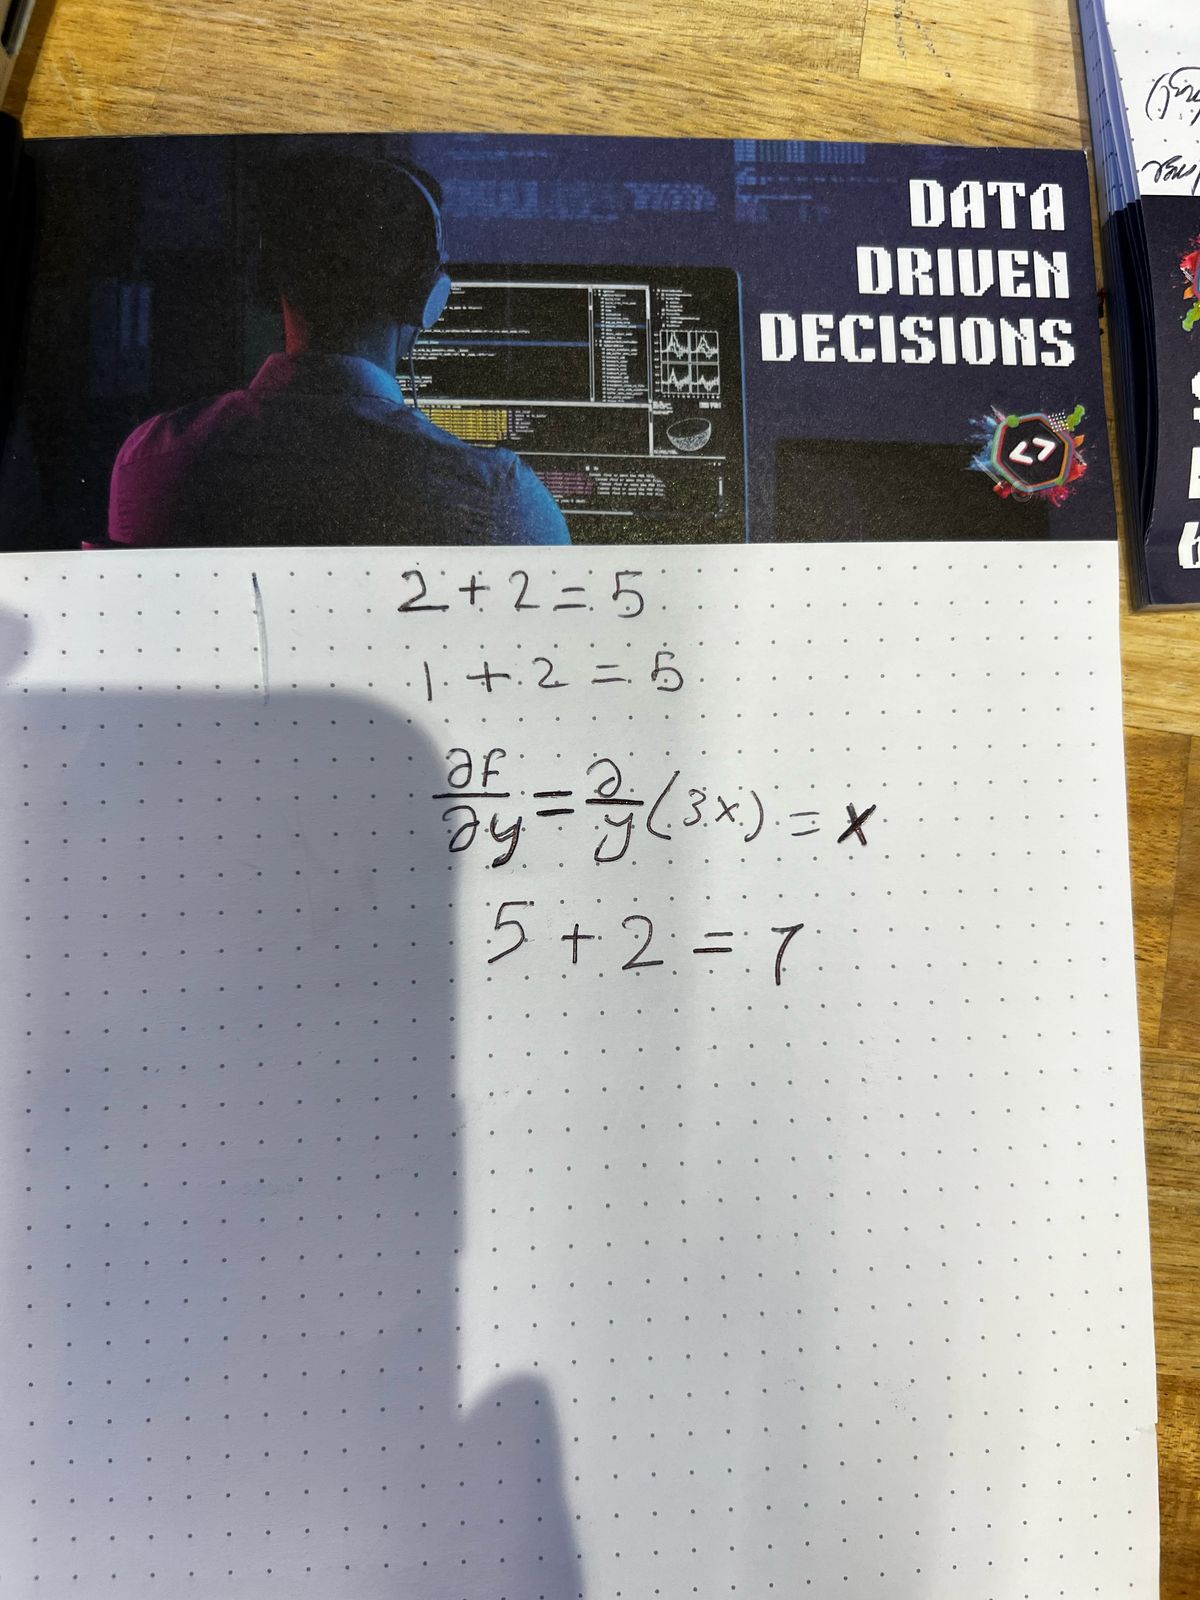 DATA
DRIVEN
DECISIONS
<>
2 + 2 = 5
1 + 2 = 5
∂f/∂y = ∂/y (3x) = x
5 + 2 = 7